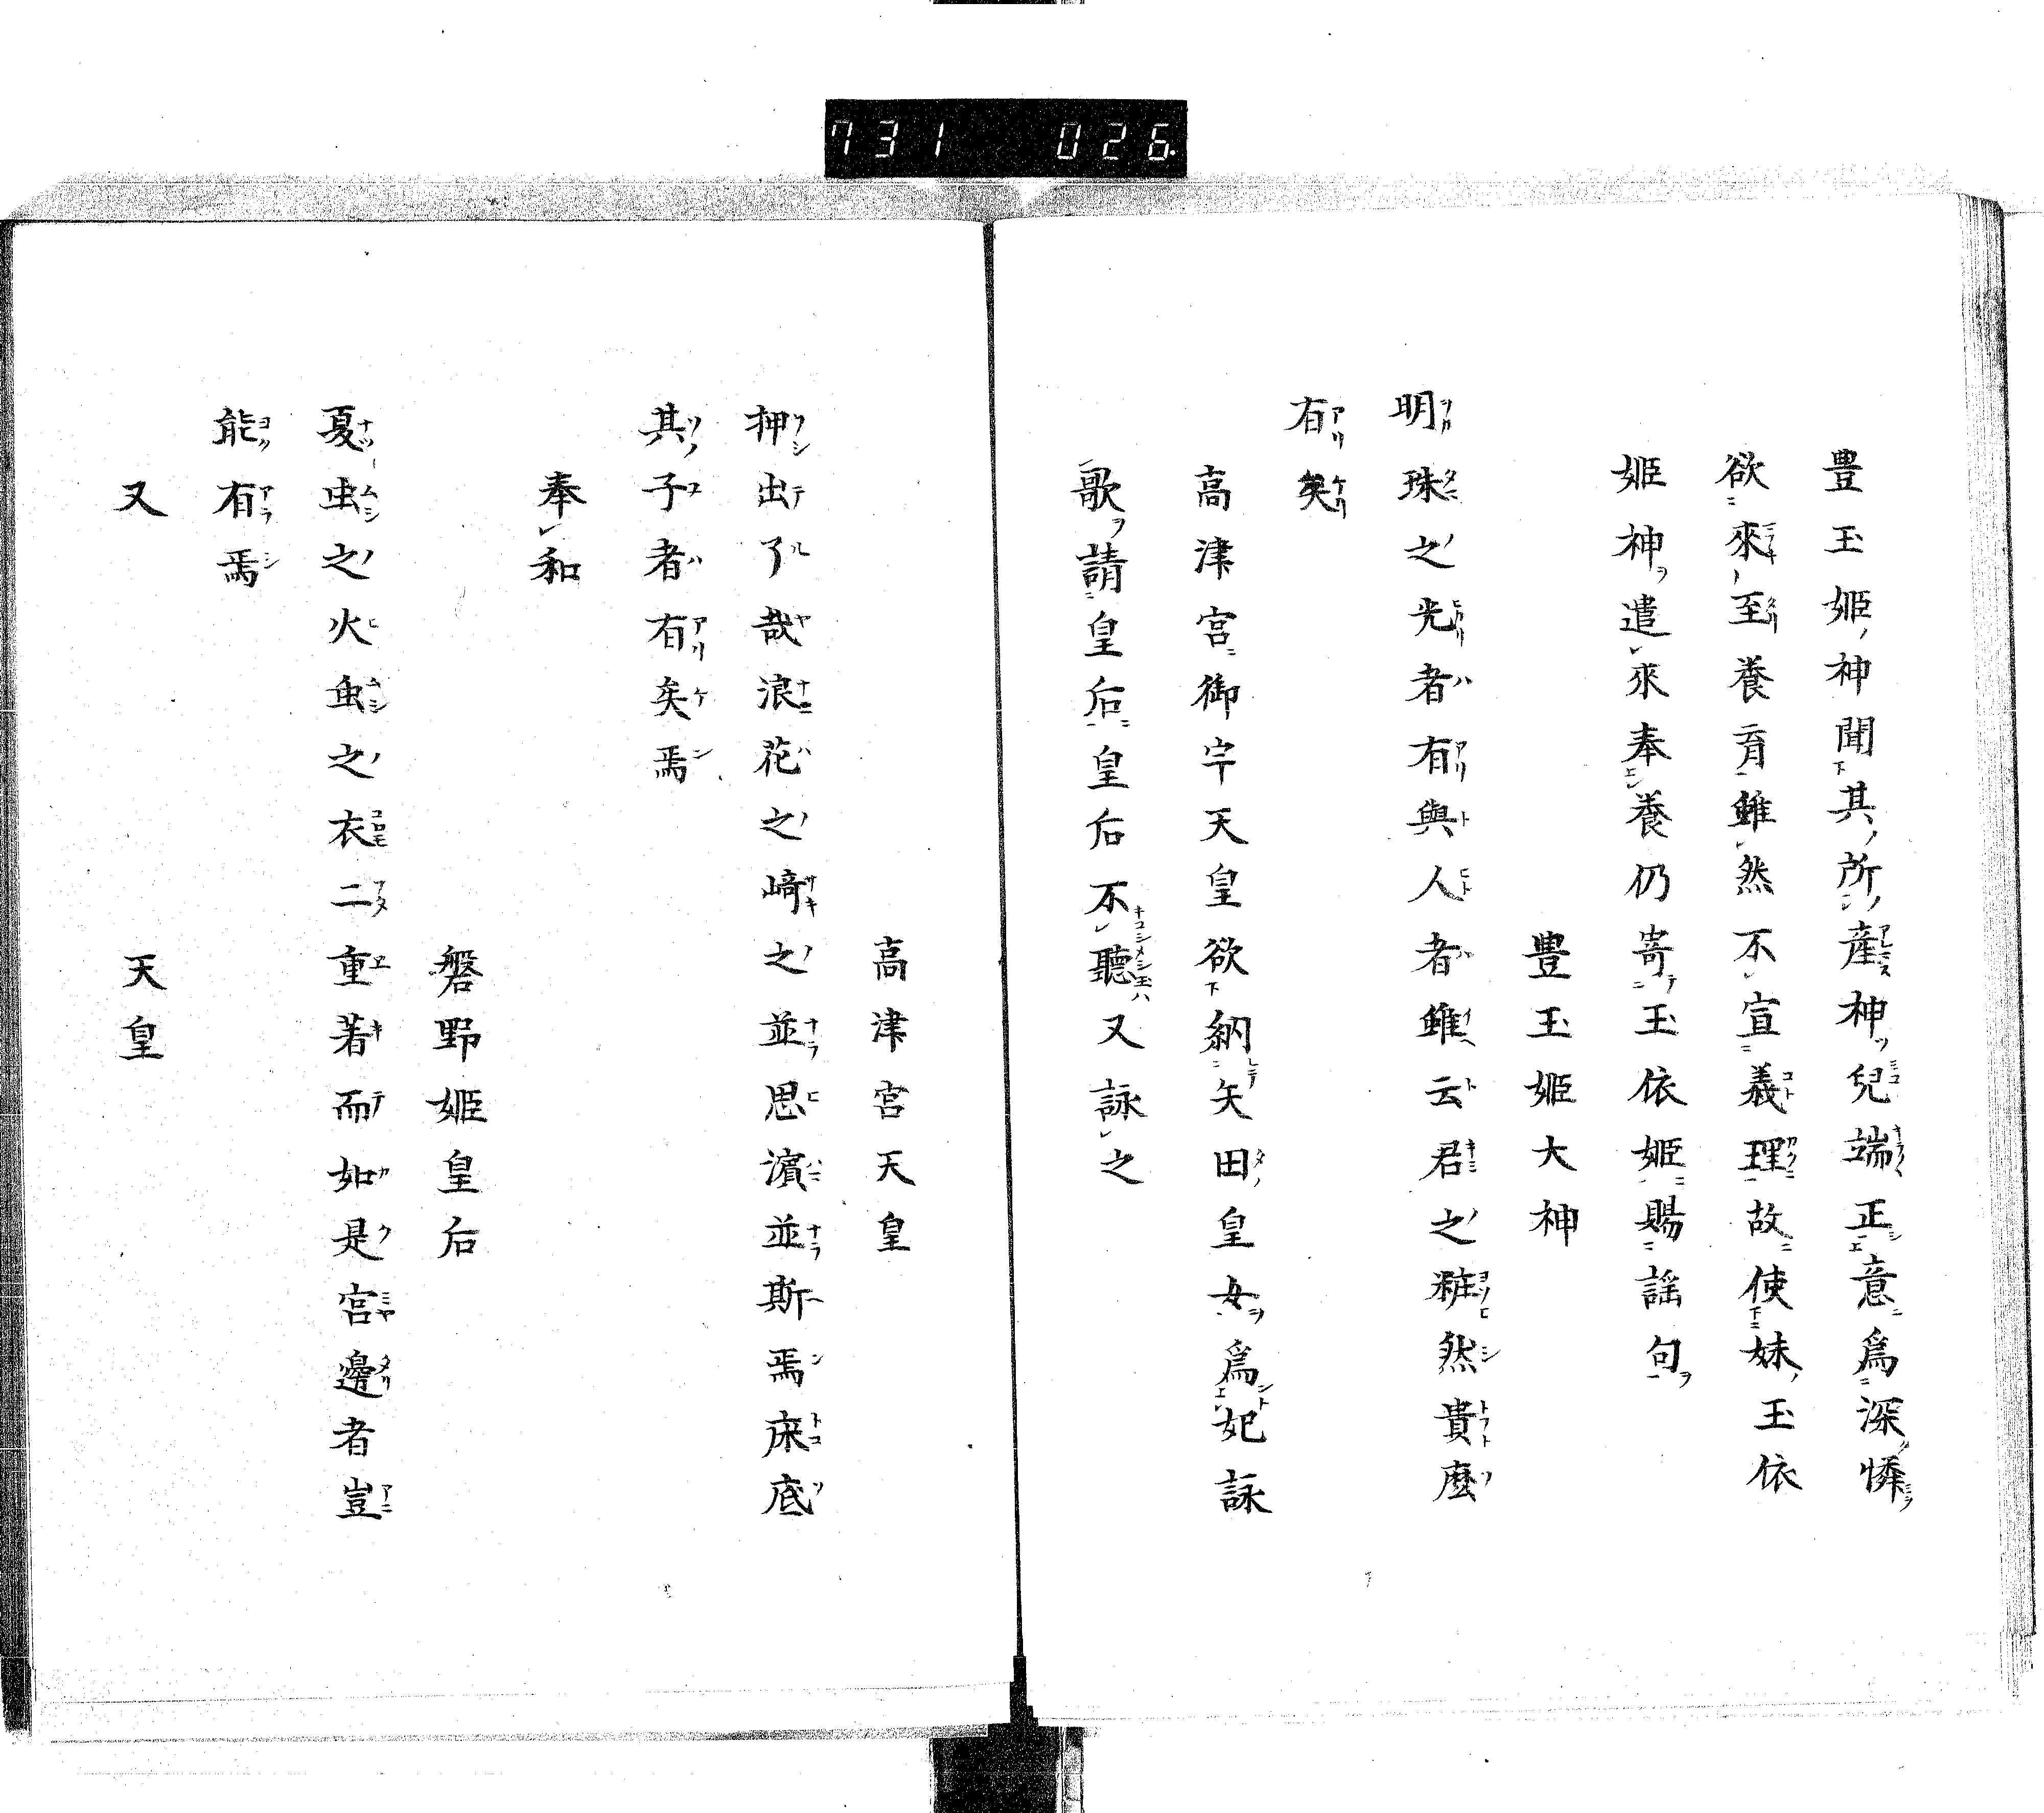 731 026
豊玉姫神聞其所産神兒端正意爲深憐
欲來至養育雖然不宣義理故使妹玉依
姫神遣來奉養仍寄玉依姫賜謡句
豊玉姫大神
明珠之光者有與人者雖云君之粧然貴麼
有矣
高津宮御宇天皇欲納矢田皇女爲妃詠
歌請皇后皇后不聽又詠之
高津宮天皇
押出了哉浪花之崎之並思濱並斯焉床底
其子者有矣焉
奉和
磐野姫皇后
夏虫之火虫之衣二重著而如是宮邊者豈
能有焉
又 天皇